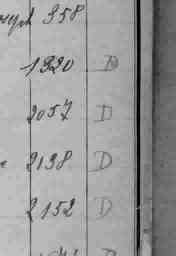 358
1320 D
2057 D
2138 D
2152 D